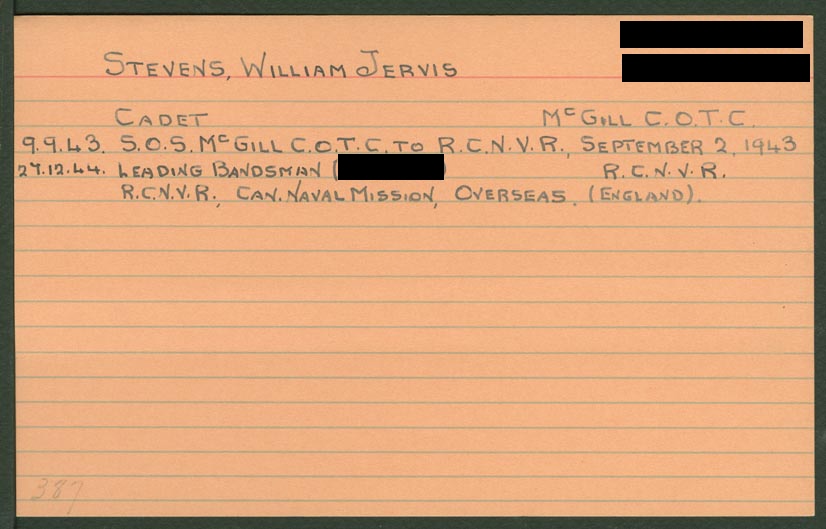 STEVENS, WILLIAM JERVIS
CADET McGILL C.O.T.C.
9.9.43. S.O.S. McGILL C.O.T.C. TO R.C.N.V.R., SEPTEMBER 2, 1943
27.12.44. LEADING BANDSMAN ( ) R.C.N.V.R.
R.C.N.V.R., CAN. NAVAL MISSION, OVERSEAS. (ENGLAND).
387